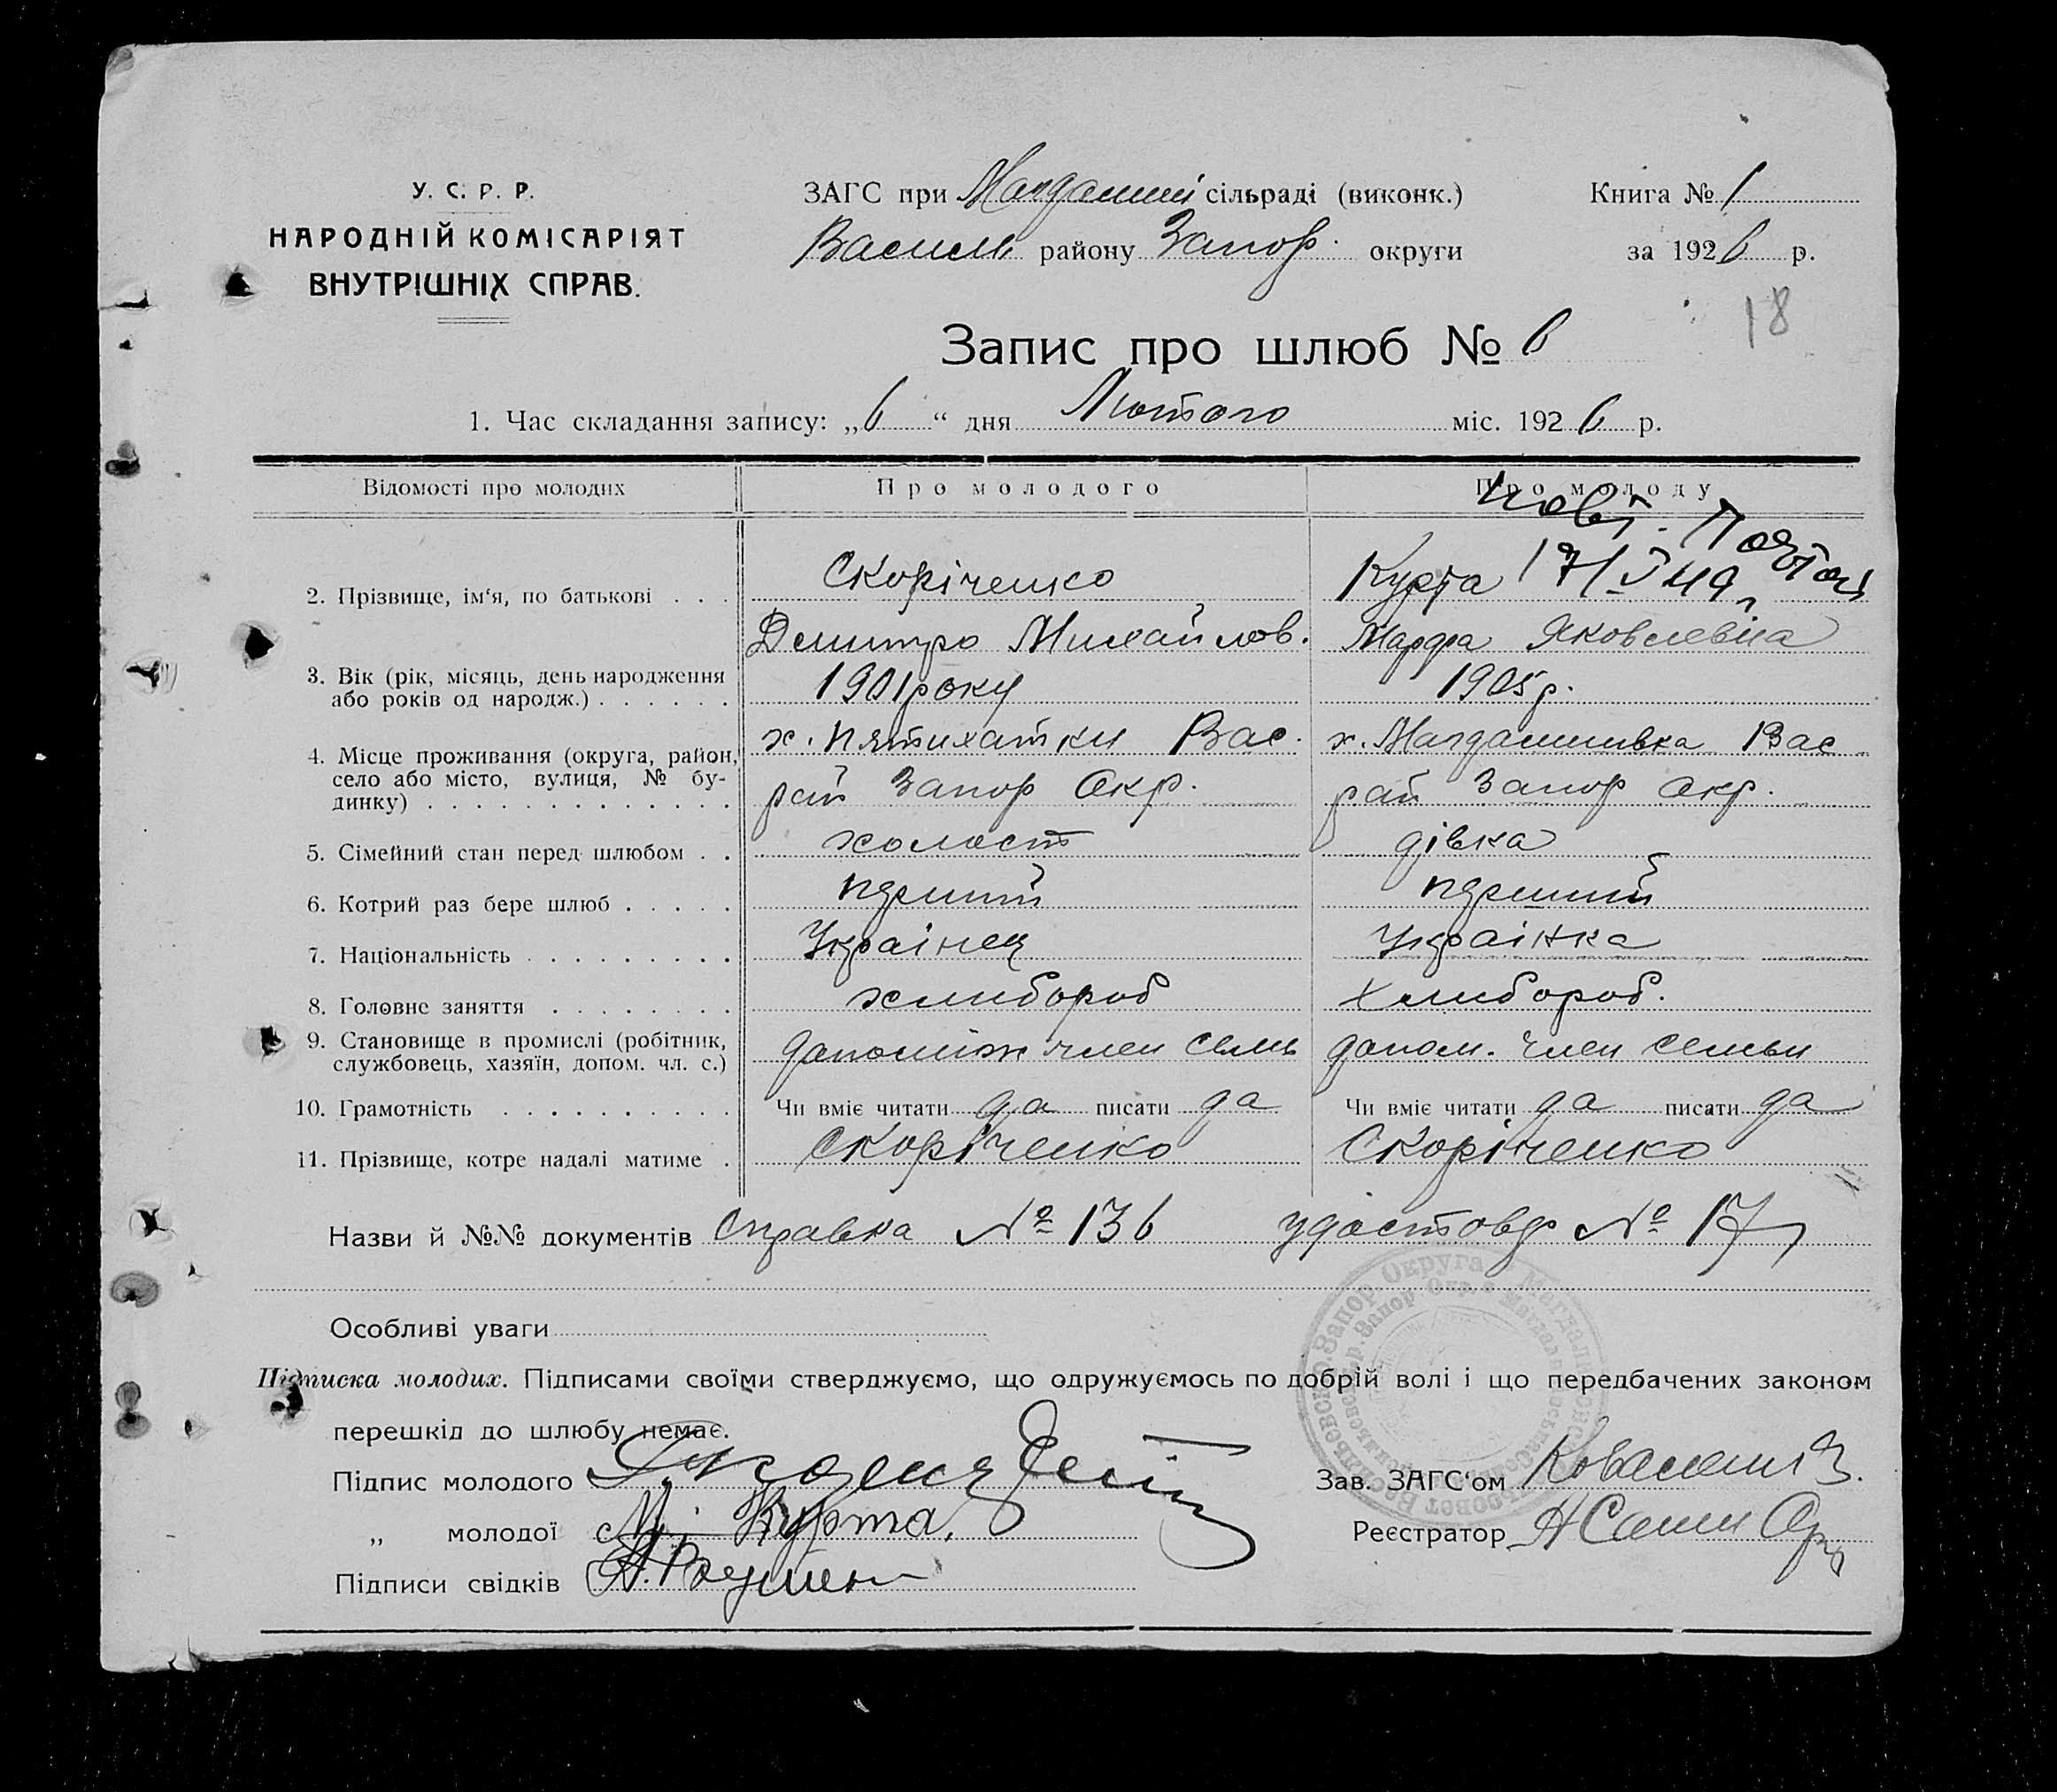 У. С. Р. Р.
НАРОДНІЙ КОМІСАРІЯТ
ВНУТРІШНІХ СПРАВ.
ЗАГС при сільраді (виконк.)
Василь району Запор. округи
Книга № 1
за 1926 р.
18
Запис про шлюб № 6
1. Час складання запису: „6“ дня Лютого міс. 1926 р.
Відомості про молодих Про молодого Про молоду
17/V 49
2. Прізвище, ім‘я, по батькові . . . Скоріченко Курта
Дмитро Михайлов. Марфа Яковлевна
3. Вік (рік, місяць, день народження або років од народж.) . . . . . . 1901 року 1905 р.
4. Місце проживання (округа, район, село або місто, вулиця, № будинку) . . . . . . . . . . . . .
х. Пятихатки Вас. х. Магдалинивка Вас
рай Запор Окр. рай Запор Окр.
5. Сімейний стан перед шлюбом . . холост дівка
6. Котрий раз бере шлюб . . . . . перший перший
7. Національність . . . . . . . . . Українец Українка
8. Головне заняття . . . . . . . . хлибороб Хлибороб.
9. Становище в промислі (робітник, службовець, хазяїн, допом. чл. с.) допоміж член семь допом. член семьи
10. Грамотність . . . . . . . . . . Чи вміє читати да писати да Чи вміє читати да писати да
11. Прізвище, котре надалі матиме . Скоріченко Скоріченко
Назви й №№ документів Справка № 136 удостовр № 17
Особливі уваги
Підписка молодих. Підписами своїми стверджуємо, що одружуємось по добрій волі і що передбачених законом
перешкід до шлюбу немає.
Підпис молодого
„ молодої М. Курта.
Підписи свідків
Зав. ЗАГС‘ом
Реєстратор